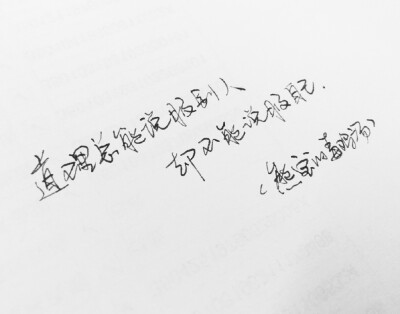 道理总能说服别人
却不能说服自己.
(熊宝的毒鸡汤)